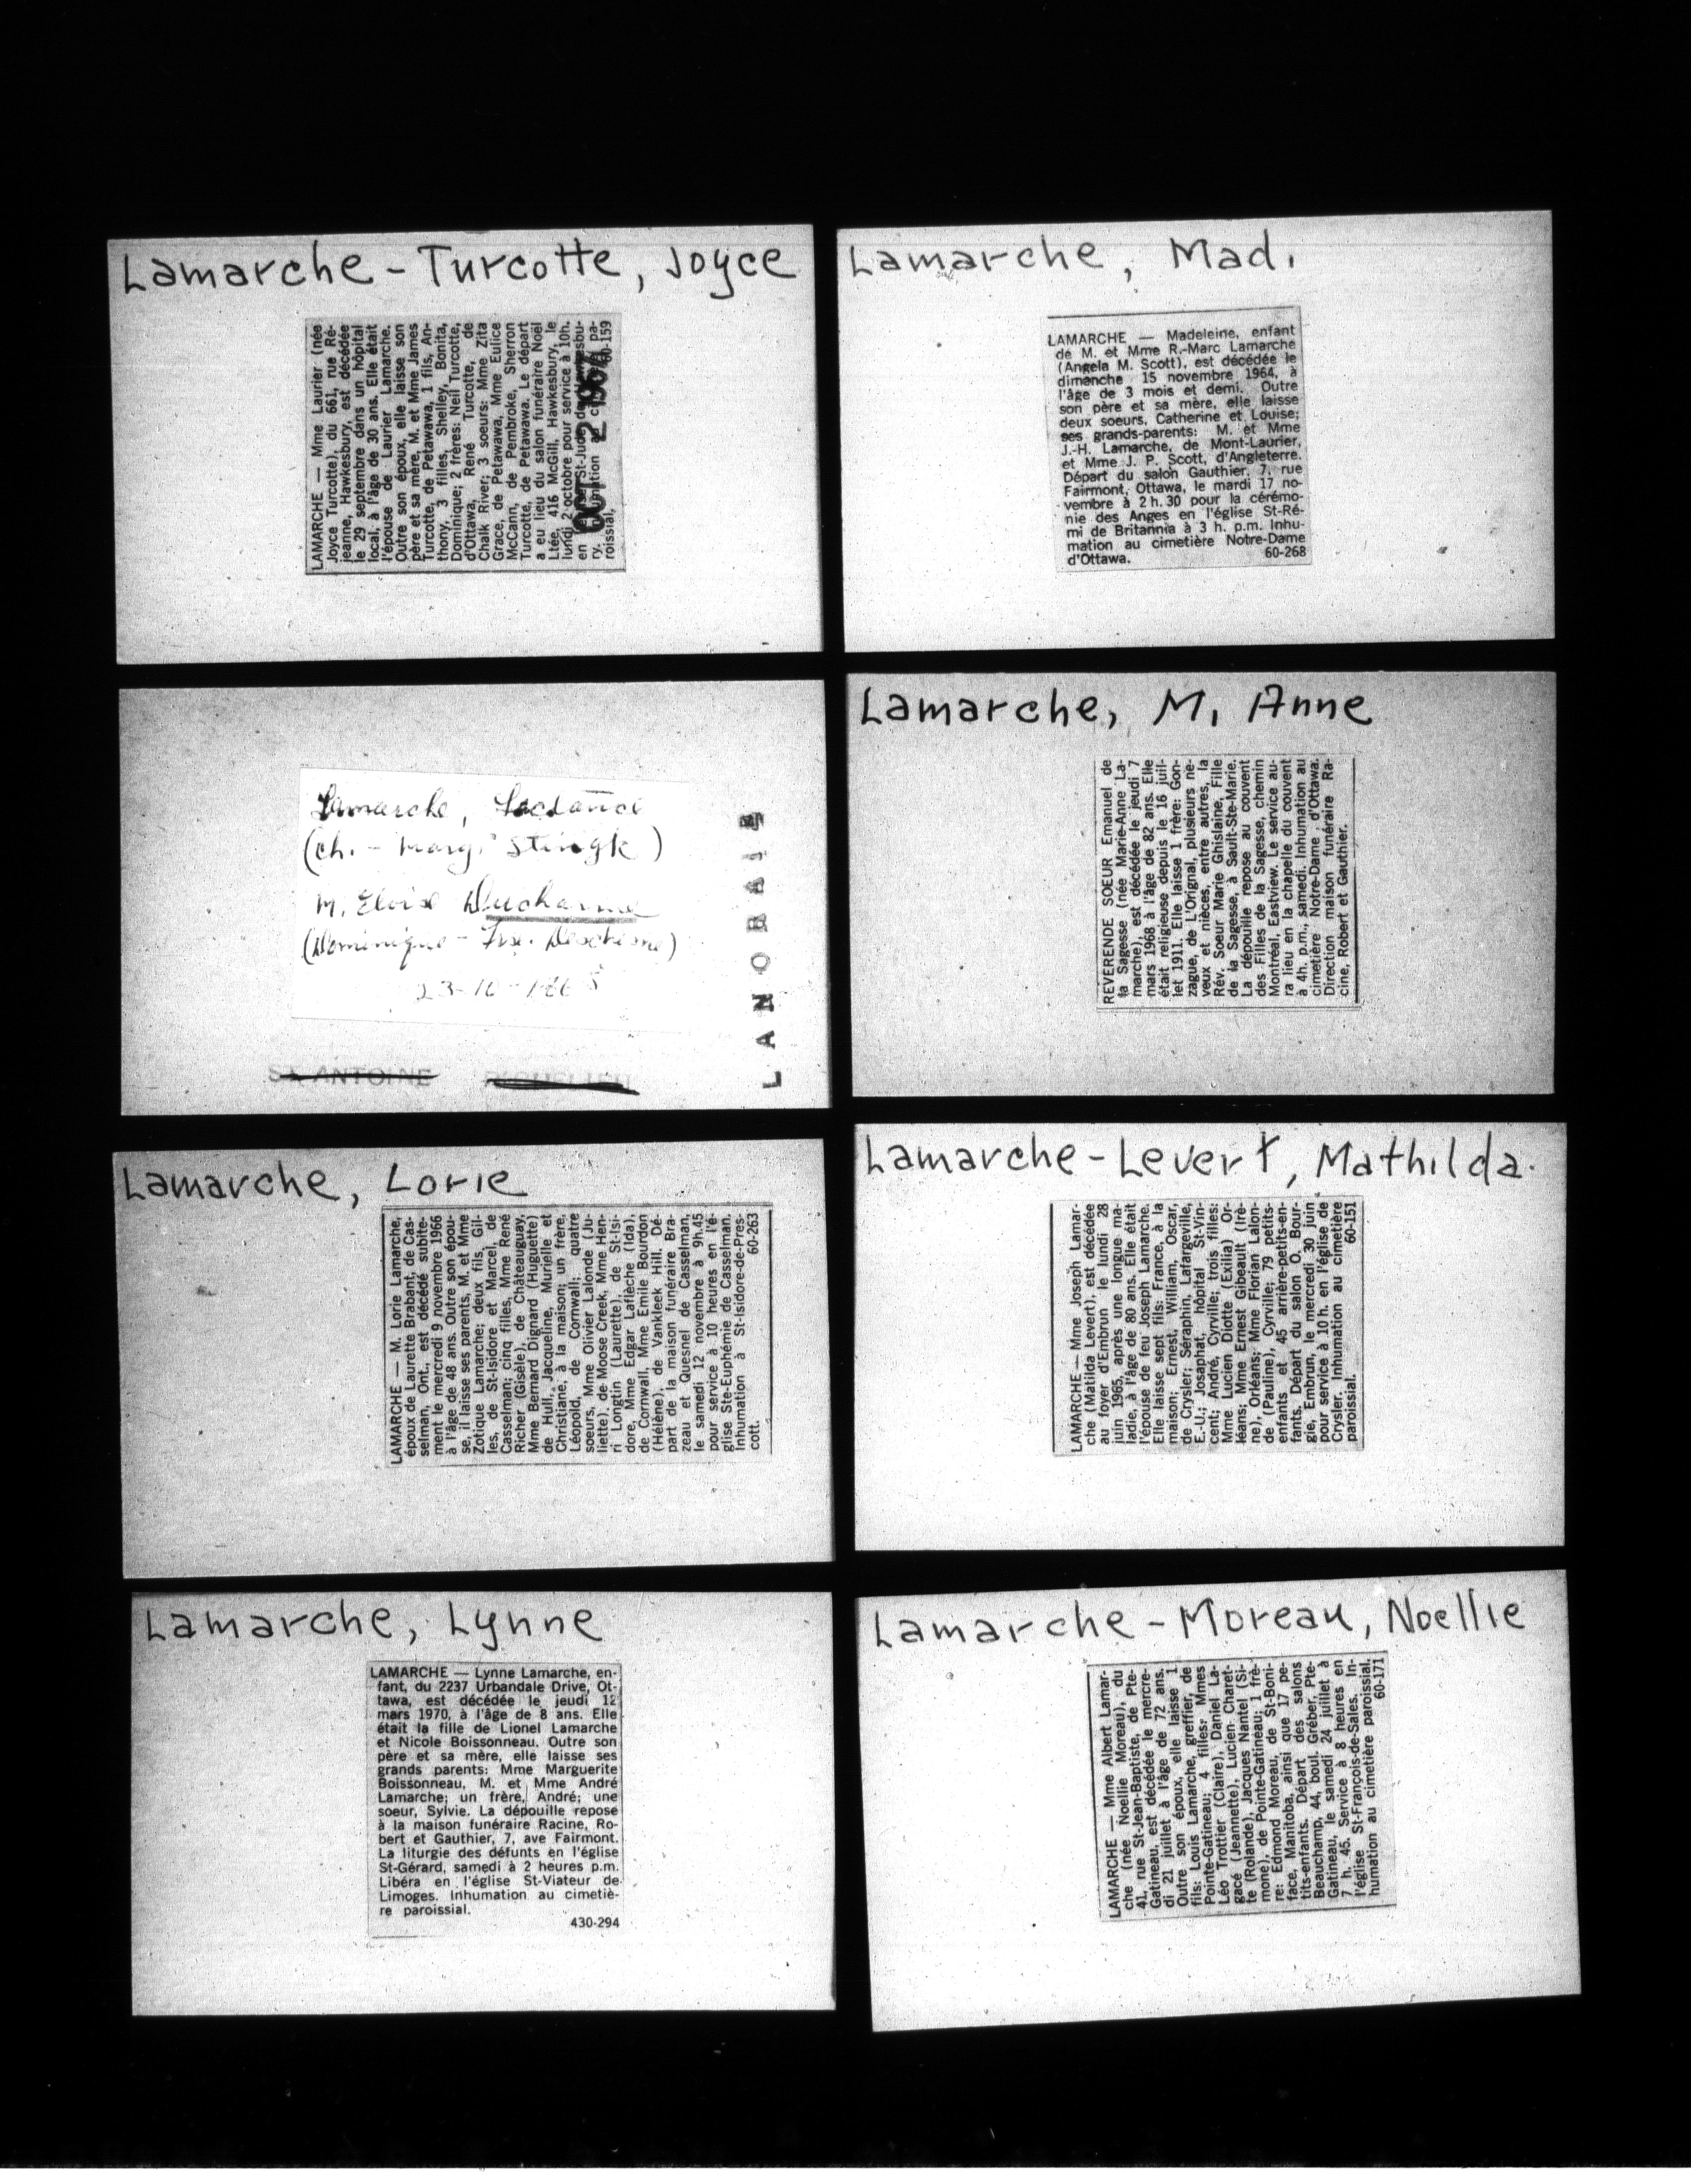 Lamarche-Turcotte, Joyce
LAMARCHE — Mme Laurier (née
Joyce Turcotte), du 661, rue Ré-
jeanne, Hawkesbury, est décédée
le 29 septembre dans un hôpital
local, à l'âge de 30 ans. Elle était
l'épouse de Laurier Lamarche.
Outre son époux, elle laisse son
père et sa mère, M. et Mme James
Turcotte, de Petawawa, 1 fils, An-
thony, 3 filles, Shelley, Bonita,
Dominique; 2 frères: Neil Turcotte,
d'Ottawa, René Turcotte, de
Chalk River; 3 soeurs: Mme Zita
Grace, de Petawawa, Mme Eulice
McCann, de Pembroke, Sherron
Turcotte, de Petawawa. Le départ
a eu lieu du salon funéraire Noël
Ltée, 416 McGill, Hawkesbury, le
lundi 2 octobre pour service à 10h.
en St-Jude
ry. pa-
roissial. 60-159
OCT 2 1967
Lamarche, Mad.
LAMARCHE — Madeleine, enfant
de M. et Mme R.-Marc Lamarche
(Angela M. Scott), est décédée le
dimanche 15 novembre 1964, à
l'âge de 3 mois et demi. Outre
son père et sa mère, elle laisse
deux soeurs, Catherine et Louise;
ses grands-parents: M. et Mme
J.-H. Lamarche, de Mont-Laurier,
et Mme J. P. Scott, d'Angleterre.
Départ du salon Gauthier, 7, rue
Fairmont, Ottawa, le mardi 17 no-
vembre à 2 h. 30 pour la cérémo-
nie des Anges en l'église St-Ré-
mi de Britannia à 3 h. p.m. Inhu-
mation au cimetière Notre-Dame
d'Ottawa. 60-268
Lamarche,
(Ch. - Marg. Stingk)
M. Eloise Ducharme
(Dominique - Frse. Deschesne)
LANORAIE
ST ANTOINE
Lamarche, M. Anne
REVERENDE SOEUR Emanuel de
la Sagesse (née Marie-Anne La-
marche), est décédée le jeudi 7
mars 1968 à l'âge de 82 ans. Elle
était religieuse depuis le 16 juil-
let 1911. Elle laisse 1 frère: Gon-
zague, de L'Orignal, plusieurs ne-
veux et nièces, entre autres, la
Rév. Soeur Marie Ghislaine, Fille
de la Sagesse, à Sault-Ste-Marie.
La dépouille repose au couvent
des Filles de la Sagesse, chemin
Montréal, Eastview. Le service au-
ra lieu en la chapelle du couvent
à 4h. p.m., samedi. Inhumation au
cimetière Notre-Dame d'Ottawa.
Direction maison funéraire Ra-
cine, Robert et Gauthier.
Lamarche, Lorie
LAMARCHE — M. Lorie Lamarche,
époux de Laurette Brabant, de Cas-
selman, Ont., est décédé subite-
ment le mercredi 9 novembre 1966
à l'âge de 48 ans. Outre son épou-
se, il laisse ses parents, M. et Mme
Zotique Lamarche; deux fils, Gil-
les, de St-Isidore et Marcel, de
Casselman; cinq filles, Mme René
Richer (Gisèle), de Châteauguay,
Mme Bernard Dignard (Huguette)
de Hull, Jacqueline, Murielle et
Christiane, à la maison; un frère,
Léopold, de Cornwall; quatre
soeurs, Mme Olivier Lalonde (Ju-
liette), de Moose Creek, Mme Hen-
ri Longtin (Laurette), de St-Isi-
dore, Mme Edgar Laflèche (Ida),
de Cornwall, Mme Emile Bourdon
(Hélène), de Vankleek Hill. Dé-
part de la maison funéraire Bra-
zeau et Quesnel de Casselman,
le samedi 12 novembre à 9h.45
pour service à 10 heures en l'é-
glise Ste-Euphémie de Casselman.
Inhumation à St-Isidore-de-Pres-
cott. 60-263
Lamarche-Levert, Mathilda.
LAMARCHE — Mme Joseph Lamar-
che (Matilda Levert), est décédée
au foyer d'Embrun le lundi 28
juin 1965, après une longue ma-
ladie, à l'âge de 80 ans. Elle était
l'épouse de feu Joseph Lamarche.
Elle laisse sept fils: France, à la
maison; Ernest, William, Oscar,
de Crysler; Séraphin, Lafargeville,
E.-U.; Josaphat, hôpital St-Vin-
cent; André, Cyrville; trois filles:
Mme Lucien Diotte (Exilia) Or-
léans; Mme Ernest Gibeault (Irè-
ne), Orléans; Mme Florian Lalon-
de (Pauline), Cyrville; 79 petits-
enfants et 45 arrière-petits-en-
fants. Départ du salon O. Bour-
gie, Embrun, le mercredi 30 juin
pour service à 10 h. en l'église de
Crysler. Inhumation au cimetière
paroissial. 60-151
Lamarche, Lynne
LAMARCHE — Lynne Lamarche, en-
fant, du 2237 Urbandale Drive, Ot-
tawa, est décédée le jeudi 12
mars 1970, à l'âge de 8 ans. Elle
était la fille de Lionel Lamarche
et Nicole Boissonneau. Outre son
père et sa mère, elle laisse ses
grands parents: Mme Marguerite
Boissonneau, M. et Mme André
Lamarche; un frère, André; une
soeur, Sylvie. La dépouille repose
à la maison funéraire Racine, Ro-
bert et Gauthier, 7, ave Fairmont.
La liturgie des défunts en l'église
St-Gérard, samedi à 2 heures p.m.
Libéra en l'église St-Viateur de
Limoges. Inhumation au cimetiè-
re paroissial.
430-294
Lamarche-Moreau, Noellie
LAMARCHE — Mme Albert Lamar-
che (née Noellie Moreau), du
41, rue St-Jean-Baptiste, de Pte-
Gatineau, est décédée le mercre-
di 21 juillet à l'âge de 72 ans.
Outre son époux, elle laisse 1
fils: Louis Lamarche, greffier, de
Pointe-Gatineau; 4 filles: Mmes
Léo Trottier (Claire), Daniel La-
gacé (Jeannette), Lucien Charet-
te (Rolande), Jacques Nantel (Si-
mone), de Pointe-Gatineau; 1 frè-
re: Edmond Moreau, de St-Boni-
face, Manitoba, ainsi que 17 pe-
tits-enfants. Départ des salons
Beauchamp, 44, boul. Gréber, Pte-
Gatineau, le samedi 24 juillet à
7 h. 45. Service à 8 heures en
l'église St-François-de-Sales. In-
humation au cimetière paroissial.
60-171